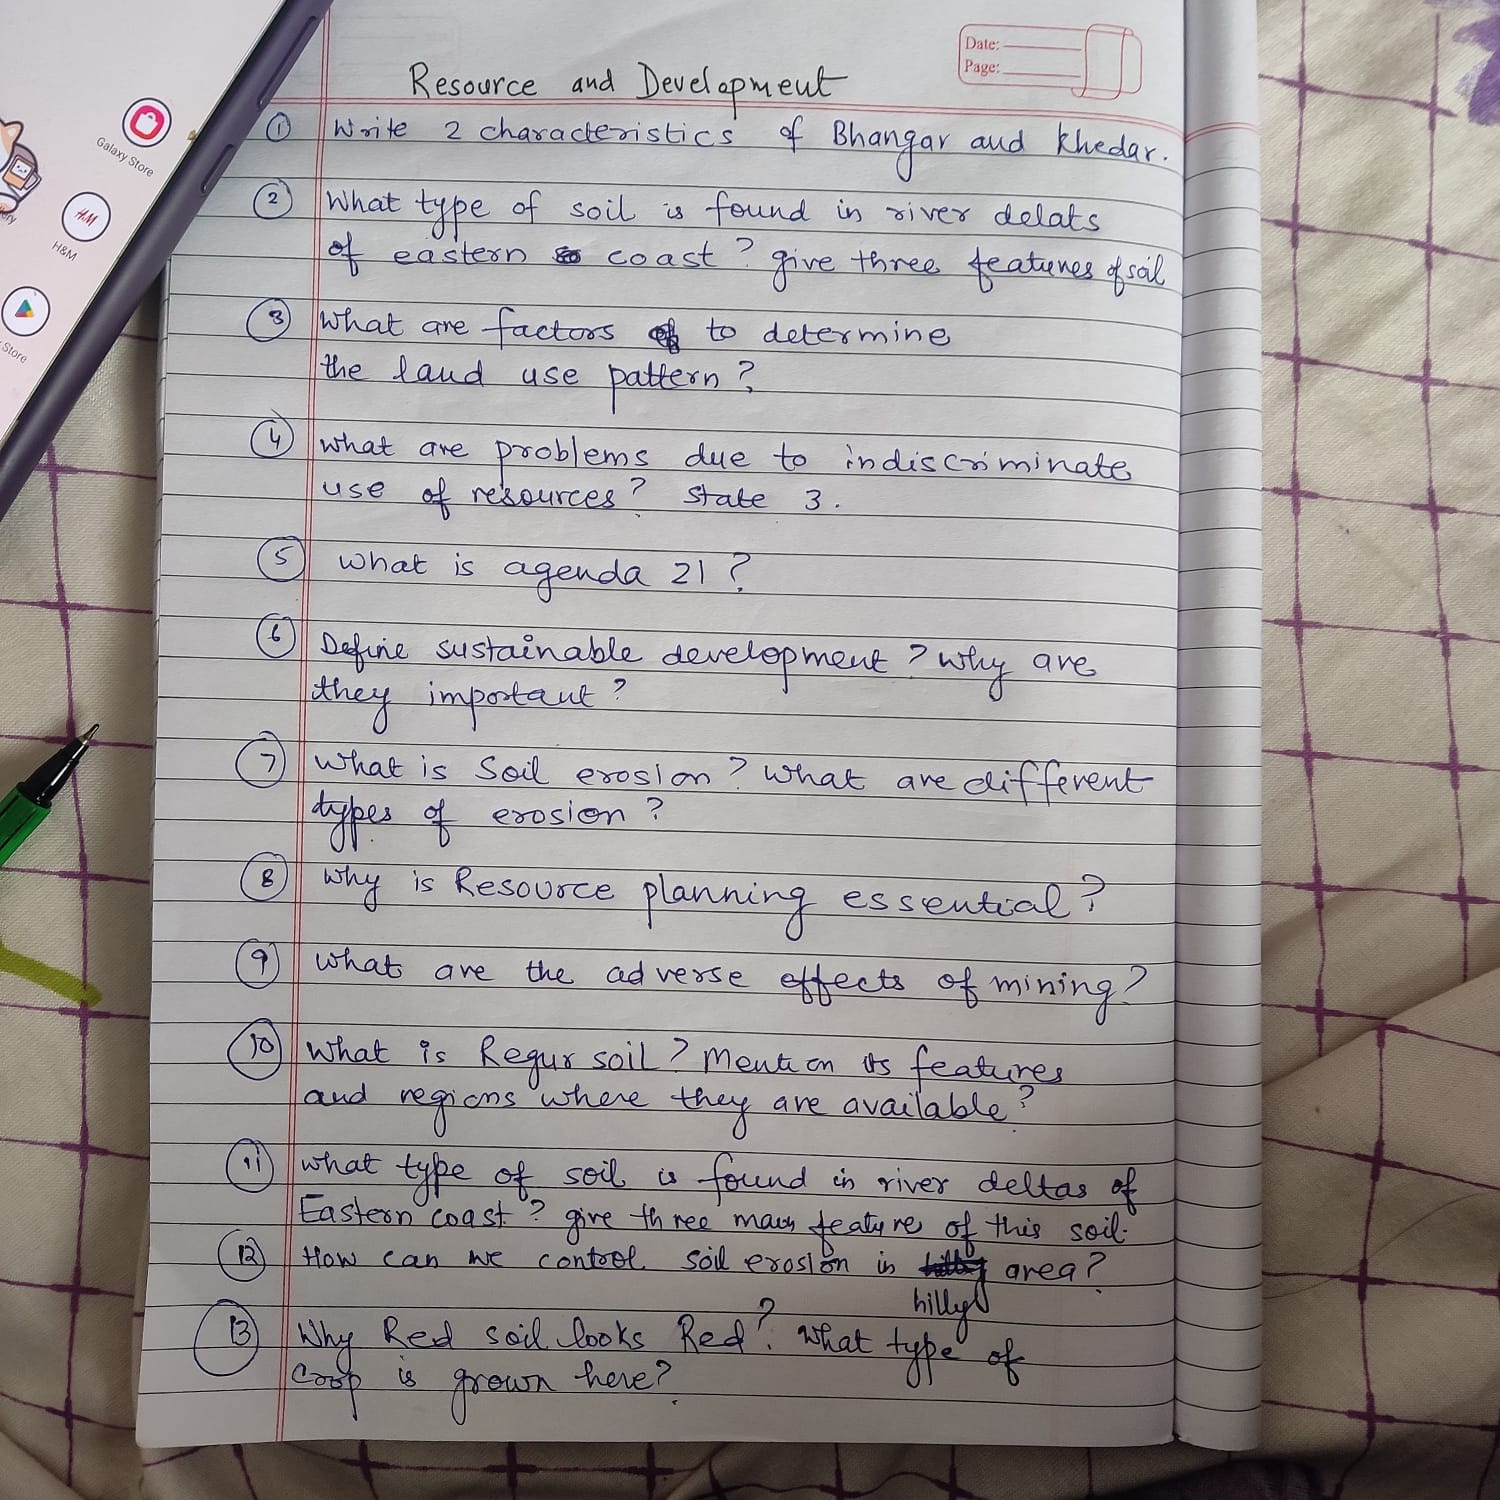 Date:
Page:
Galaxy Store
H&M
H&M
Store
Resource and Development
① Write 2 characteristics of Bhangar and Khedar.
② What type of soil is found in river delats
of eastern coast ? give three features of soil
③ What are factors to determine
the land use pattern ?
④ What are problems due to indiscriminate
use of resources ? state 3.
⑤ What is agenda 21 ?
⑥ Define sustainable development ? Why are
they important ?
⑦ What is Soil erosion ? What are different
types of erosion ?
⑧ Why is Resource planning essential ?
⑨ What are the adverse effects of mining ?
⑩ What is Regur soil ? Mention its features
and regions where they are available ?
⑪ What type of soil is found in river deltas of
Eastern coast ? give three main feature of this soil.
⑫ How can we control soil erosion in area ?
hilly
⑬ Why Red soil looks Red ? What type of
crop is grown here ?